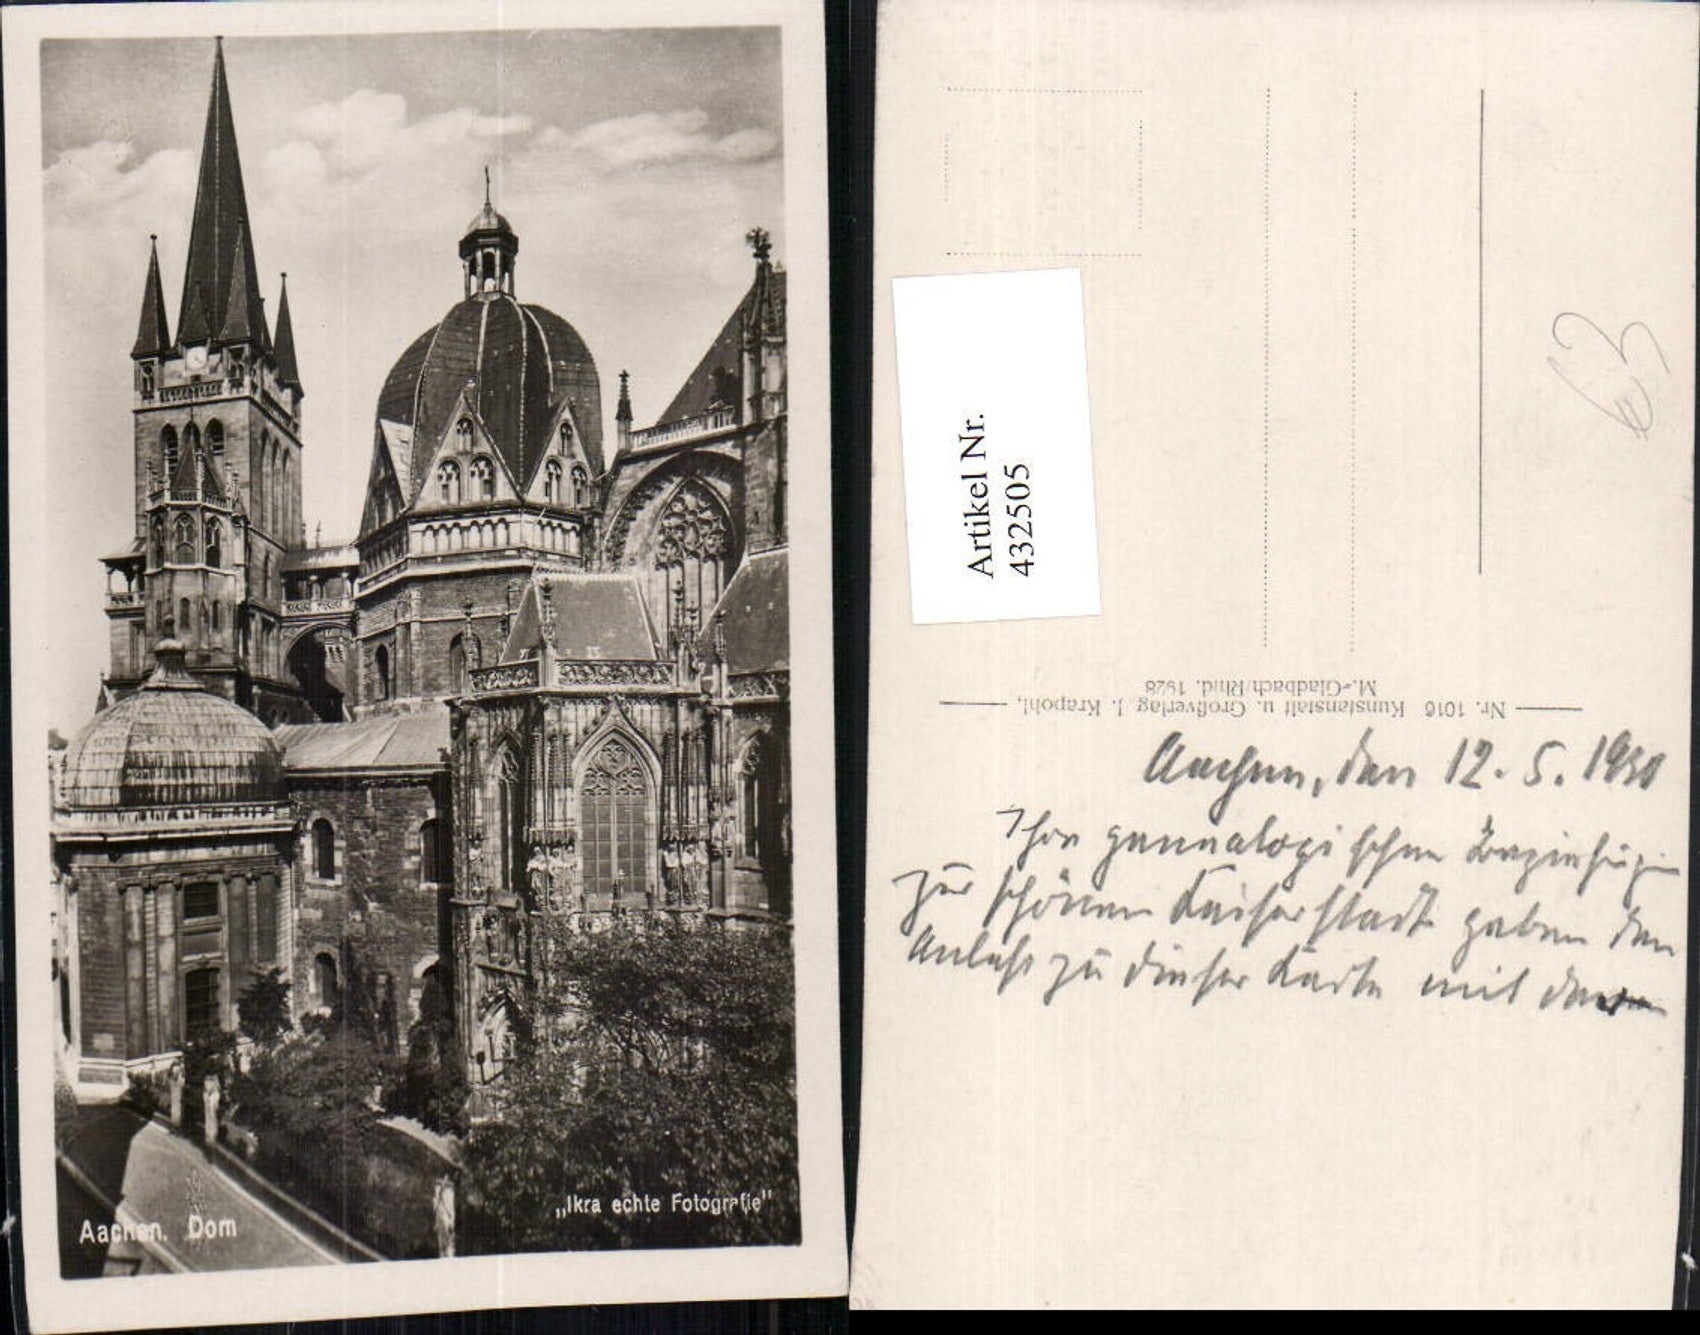 Aachen. Dom
„Ikra echte Fotografie"
Artikel Nr.
432505
€3
Nr. 1016 Kunstanstalt u. Großverlag J. Krapohl,
M.-Gladbach/Rhld. 1928
Aachen, den 12. 5. 1930
Ihre genealogischen Beziehungen
zur schönen Kaiserstadt gaben den
Anlass zu dieser Karte mit